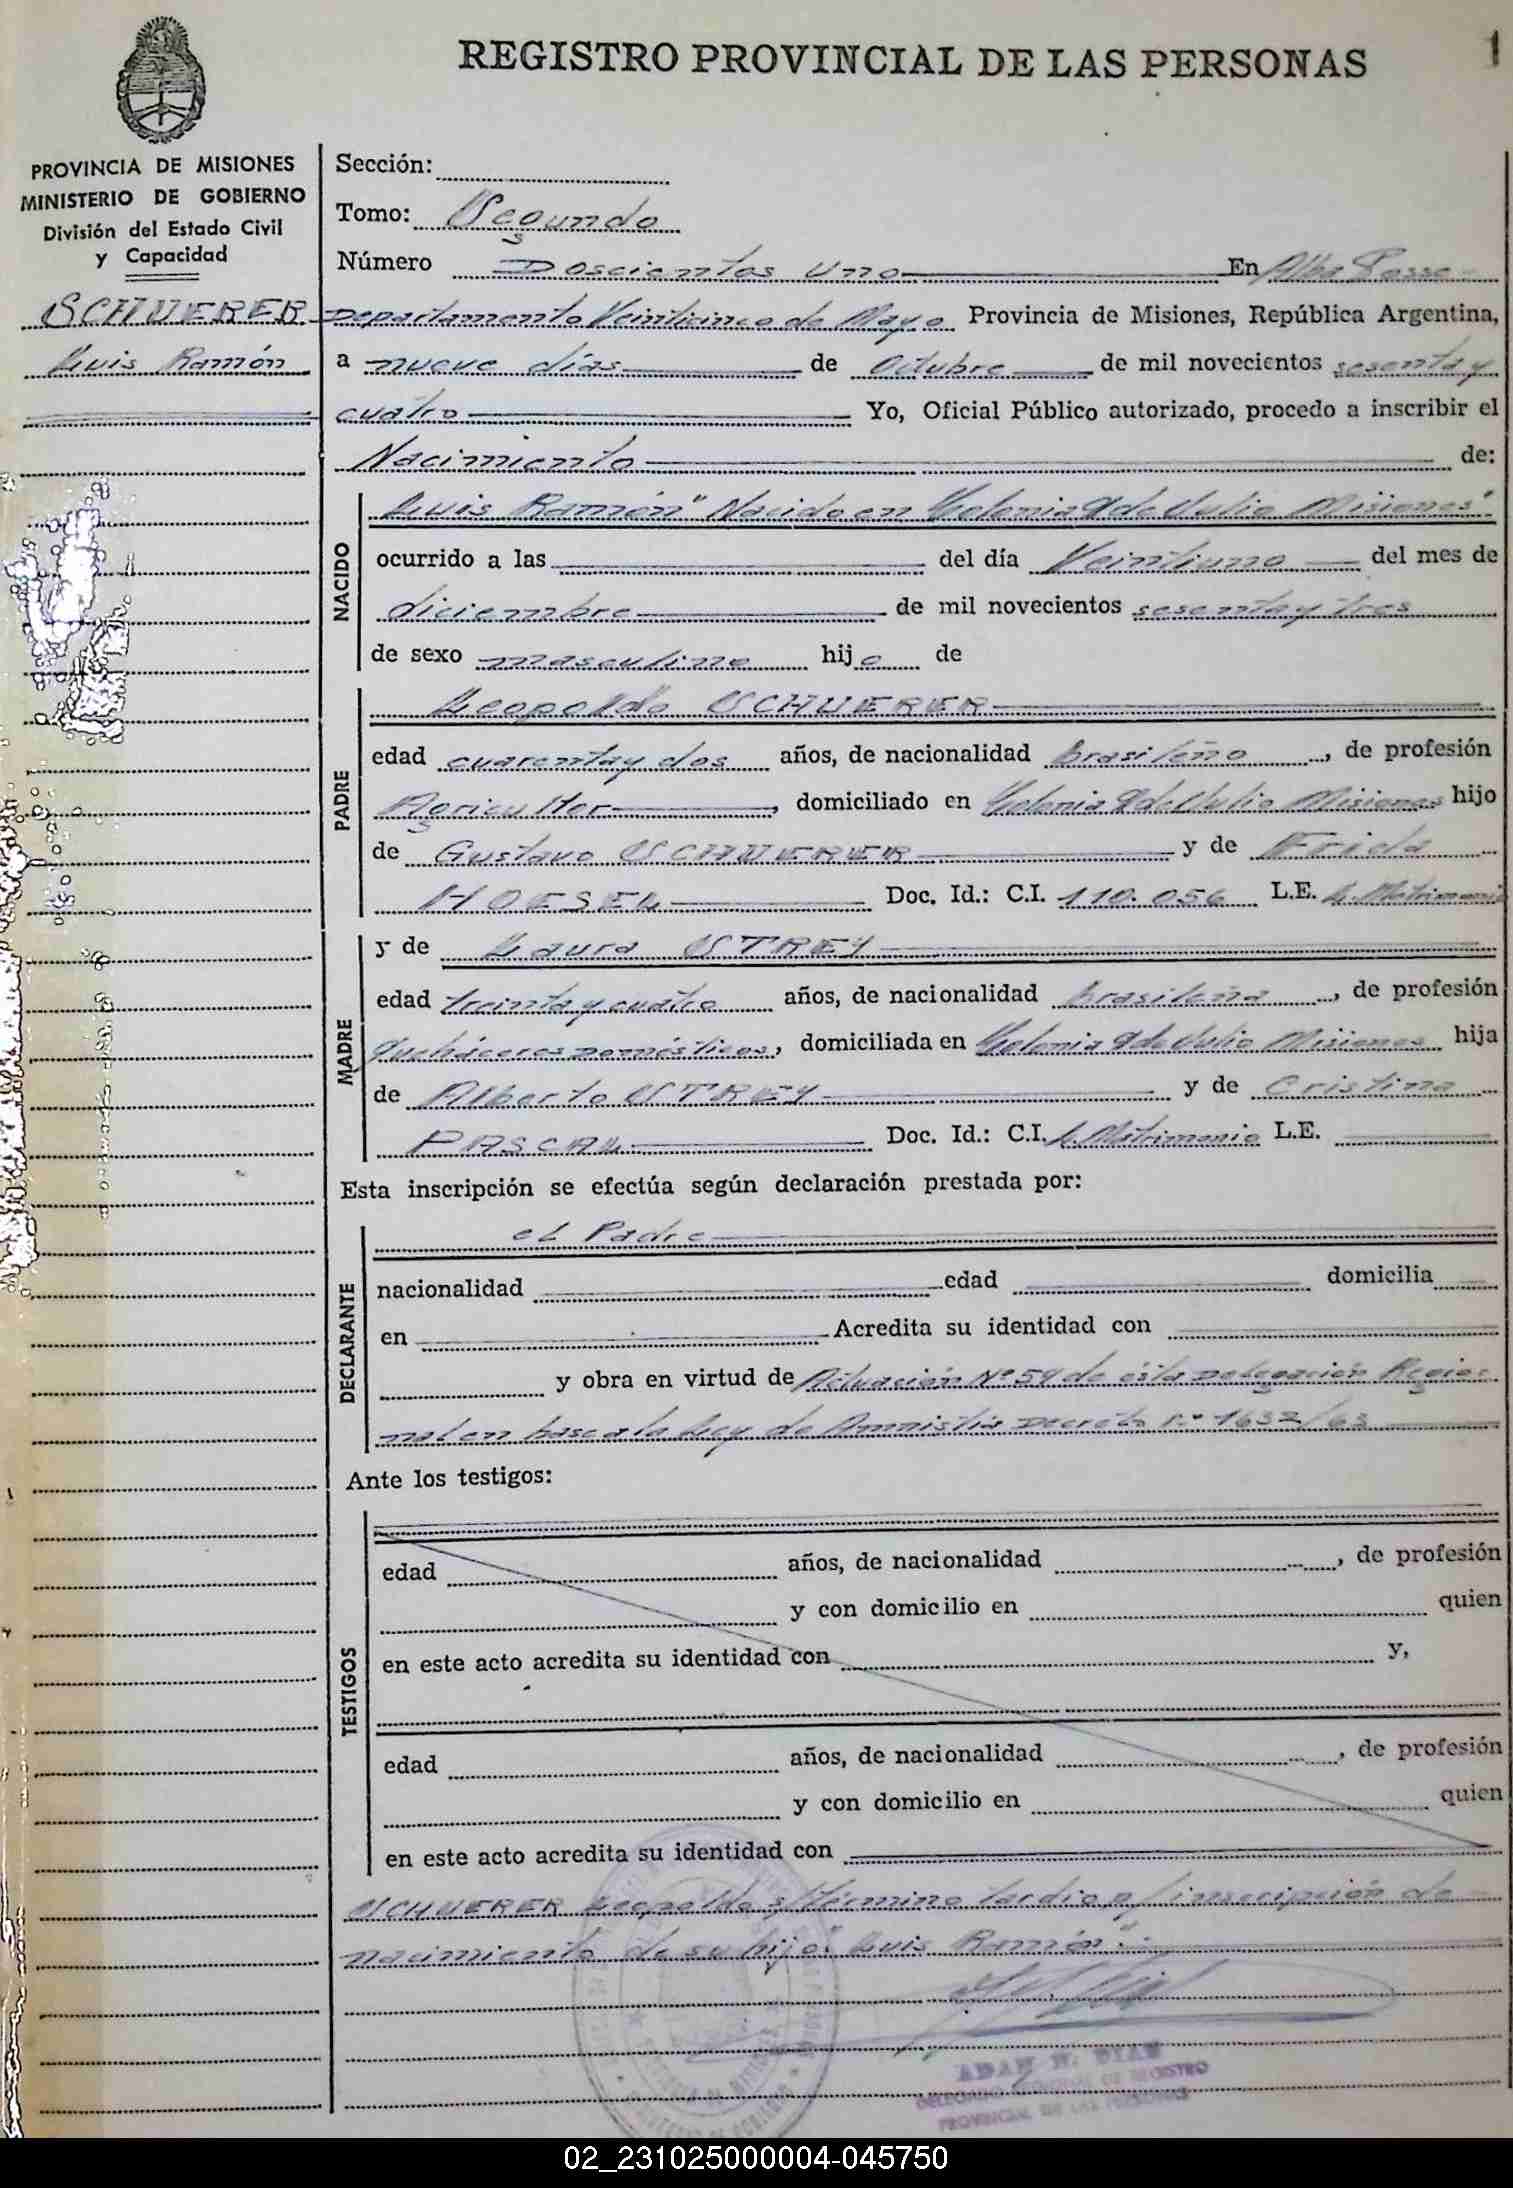 REGISTRO PROVINCIAL DE LAS PERSONAS
1
PROVINCIA DE MISIONES
MINISTERIO DE GOBIERNO
División del Estado Civil
y Capacidad
SCHUERER
Luis Ramón
Sección:
Tomo: Segundo
Número Doscientos Uno En Alba Posse
Departamento Veinticinco de Mayo Provincia de Misiones, República Argentina,
a nueve días de Octubre de mil novecientos sesenta y
cuatro Yo, Oficial Público autorizado, procedo a inscribir el
Nacimiento de:
NACIDO
Luis Ramón" Nacido en Colonia 9 de Julio Misiones".
ocurrido a las del día Veintiuno del mes de
diciembre de mil novecientos sesenta y tres
de sexo masculino hijo de
PADRE
Leopoldo SCHUERER
edad cuarenta y dos años, de nacionalidad brasileño, de profesión
Agricultor, domiciliado en Colonia 9 de Julio Misiones hijo
de Gustavo SCHUERER y de Frida
HOESEL Doc. Id.: C.I. 110.056 L.E. L. Matrimonio
MADRE
y de Laura STREY
edad treinta y cuatro años, de nacionalidad brasileña, de profesión
Quehaceres Domésticos, domiciliada en Colonia 9 de Julio Misiones hija
de Alberto STREY y de Cristina
PASCAL Doc. Id.: C.I. L. Matrimonio L.E.
Esta inscripción se efectúa según declaración prestada por:
DECLARANTE
el Padre
nacionalidad edad domicilia
en Acredita su identidad con
y obra en virtud de Actuación Nº 54 de ésta Delegación Regio-
nal en base a la Ley de Amnistía Decreto nº 1632/63
Ante los testigos:
TESTIGOS
edad años, de nacionalidad , de profesión
y con domicilio en quien
en este acto acredita su identidad con y,
edad años, de nacionalidad , de profesión
y con domicilio en quien
en este acto acredita su identidad con
SCHUERER Leopoldo s/término tardío p/ inscripción de
nacimiento de su hijo "Luis Ramón".
DELEGADO GENERAL DE REGISTRO
PROVINCIAL DE LAS PERSONAS
02_231025000004-045750